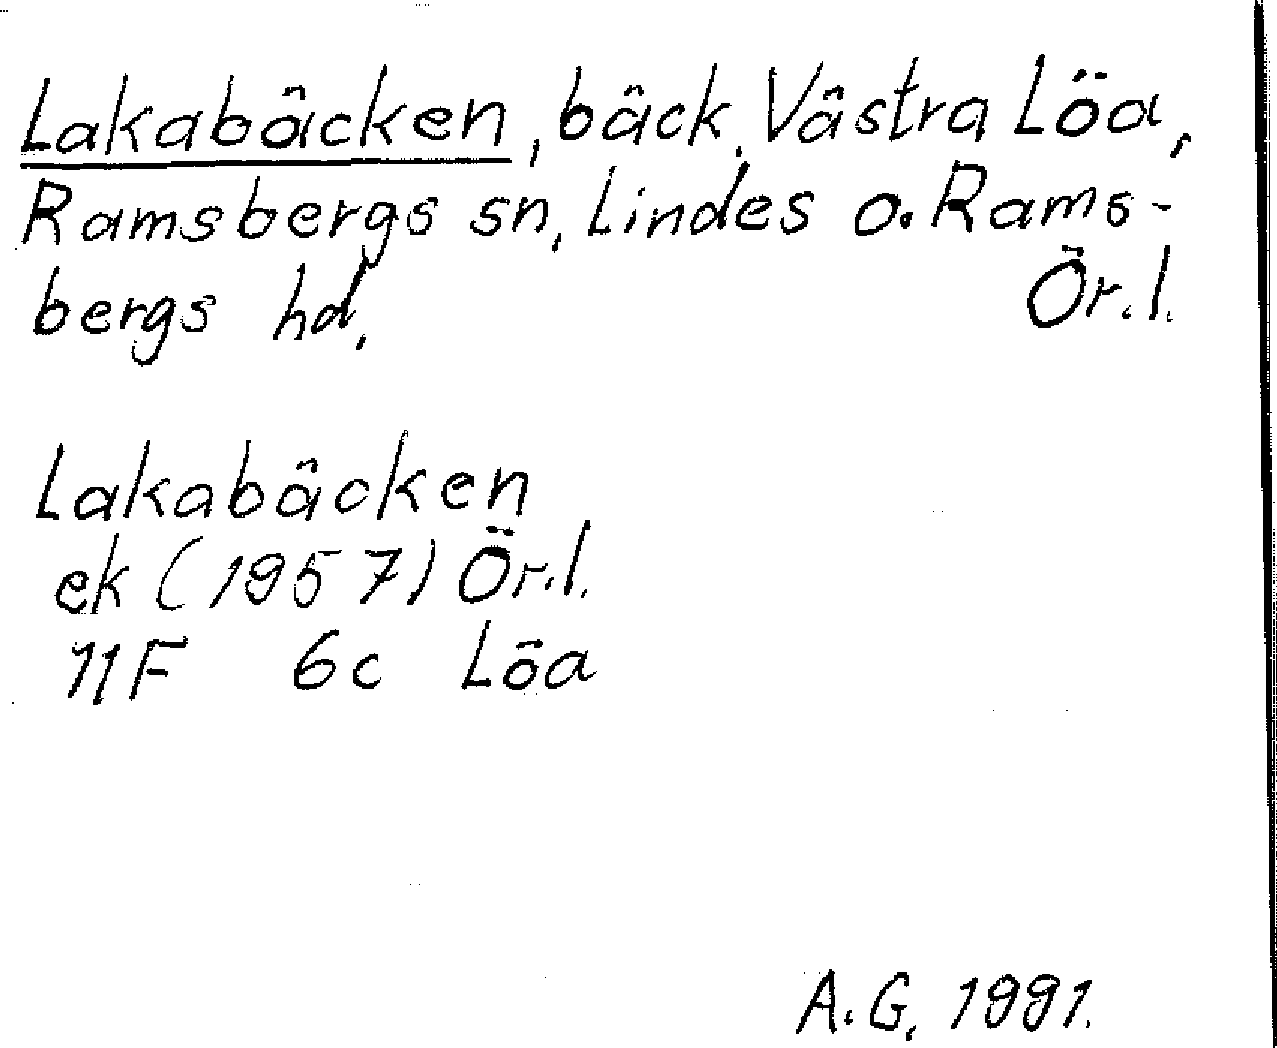 Lakabäcken, bäck, Västra Löa,
Ramsbergs sn, Lindes o. Rams-
bergs hd. Ör.l.
Lakabäcken
ek (1957) Ör.l.
11F 6c Löa
A.G. 1991.